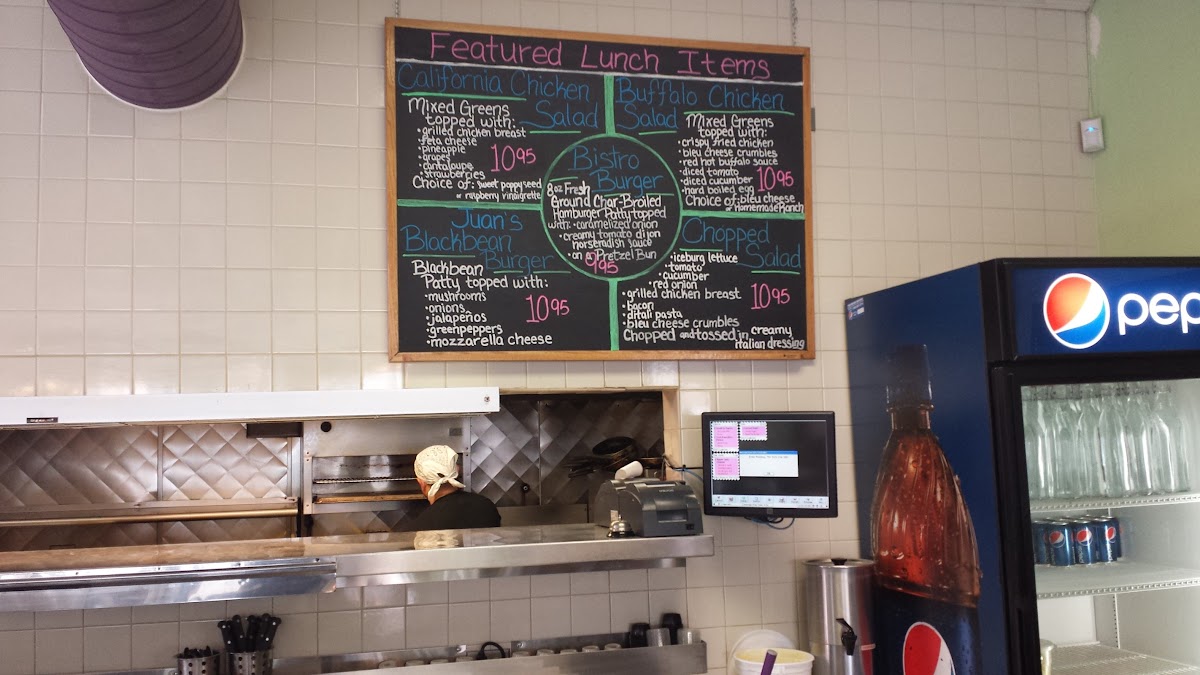 Featured Lunch Items
California Chicken
Salad
Mixed Greens
topped with:
• grilled chicken breast
• feta cheese
• pineapple
• grapes
• cantaloupe
• strawberries
10 95
Choice of: sweet poppyseed
or raspberry vinaigrette
Buffalo Chicken
Salad
Mixed Greens
topped with:
• crispy fried chicken
• bleu cheese crumbles
• red hot buffalo sauce
• diced tomato
• diced cucumber
• hard boiled egg
10 95
Choice of: bleu cheese
or Homemade Ranch
Bistro
Burger
8oz Fresh
Ground Char-Broiled
Hamburger Patty topped
with: • caramelized onion
• creamy tomato dijon
horseradish sauce
• on a Pretzel Bun
9 95
Juan's
Blackbean
Burger
Blackbean
Patty topped with:
• mushrooms
• onions
• jalapeños
• greenpeppers
• mozzarella cheese
10 95
Chopped
Salad
• iceburg lettuce
• tomato
• cucumber
• red onion
• grilled chicken breast
• bacon
• ditali pasta
• bleu cheese crumbles
10 95
Chopped and tossed in creamy
italian dressing
pep